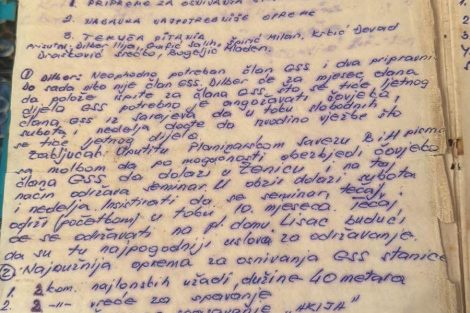 1. PRIPREME ZA OSNIVANJE
2. NABAVKA NAJPOTREBNIJE OPREME
3. TEKUĆA PITANJA
Prisutni, Dilber Ilija, Salih, Šairić Milan, Krbić Dževad
Drašković Srećko, Bogeljić Mladen.
① Dilber: Neophodno potreban član GSS i dva pripravni
Do sada nibo nije član GSS. Dilber će za mjesec dana
da položi ispite za člana GSS, što se tiče ljetnog
dijela GSS potrebno je angažovati čovjeka,
člana GSS iz Sarajeva da u toku slobodnih,
subota, i nedelja dođe da izvodimo vježbe što
se tiče ljetnog dijela.
Zaključak: Uputiti Planinarskom Savezu BiH pismo
sa molbom da po mogućnosti obezbjedi čovjeka
člana GSS da dolazi u Zenicu i na taj
način održava seminar. U obzir dolazi subota
i nedelja. Insistirati da se seminar, tečaj,
održi (početkom) u toku 10. mjeseca. Tečaj
će se održavati na pl. domu. Lisac budući
da su tu najpogodniji uslovi za održavanje.
② Najnužnija oprema za osnivanja GSS stanice
1. 2 kom. najlonskih užadi, dužine 40 metara
2. 2 -"- vreće za spavanje
spavanje "KIJA"